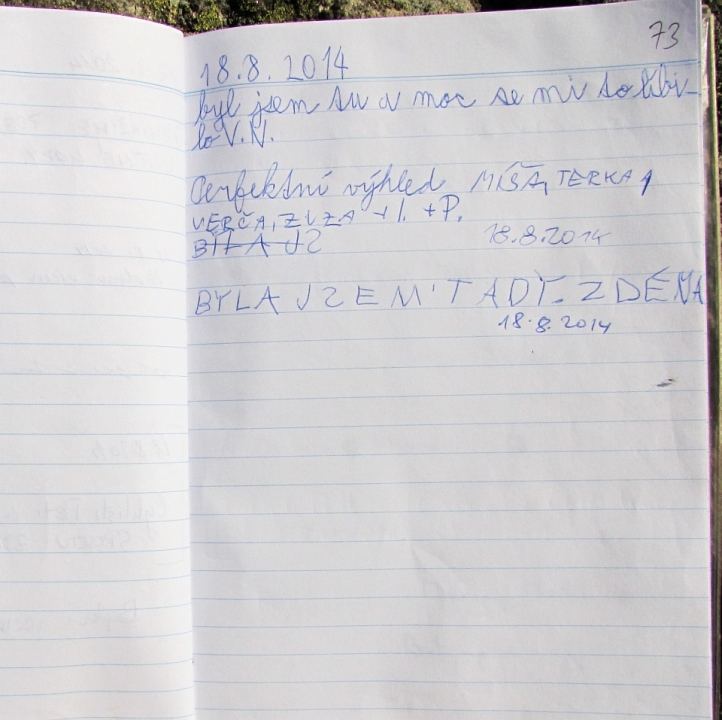 73
18.8. 2014
byl jsem tu a moc se mi to líbi-
lo V.N.
Perfektní výhled MÍŠA, TERKA,
VERČA, ZUZA + I. + P.
BYLA JS
18.8.2014
BYLA JZEM TADY. ZDÉŇA
18.8.2014